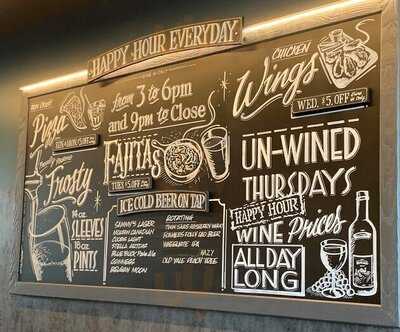 HAPPY HOUR EVERYDAY
DINE IN ONLY
from 3 to 6pm
and 9pm to Close
Pizza
SUN & MON, $5 OFF
FAJITAS
TUES $5 OFF
CHICKEN
Wings
WED, $5 OFF
Frosty
14 oz.
SLEEVES
16 oz.
PINTS
ICE COLD BEER ON TAP
SAMMY'S LAGER
MOLSON CANADIAN
COORS LIGHT
STELLA ARTOIS
BLUE BUCK Pale Ale
GUINNESS
BELGIAN MOON
ROTATING
TWIN SAILS
IPA
HAZY
OLD YALE
UN-WINED
THURSDAYS
HAPPY HOUR
WINE Prices
ALL DAY
LONG